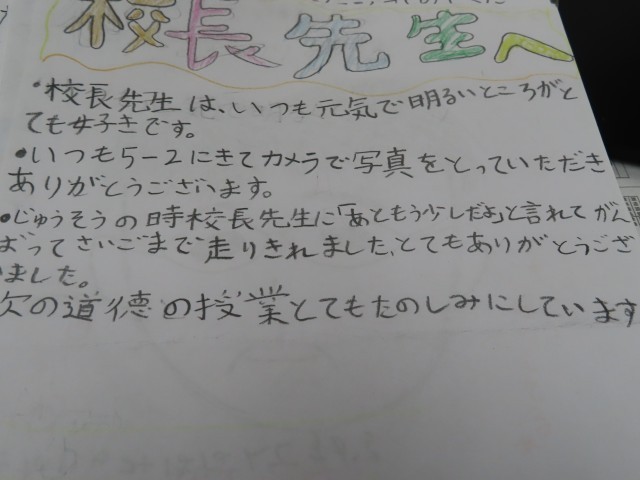 校長先生へ
・校長先生は、いつも元気で明るいところがと
ても好きです。
・いつも5-2にきてカメラで写真をとっていただき
ありがとうございます。
・じゅうそうの時校長先生に「あともう少しだよ」と言れてがん
ばってさいごまで走りきれました、とてもありがとうござ
いました。
次の道徳の授業とてもたのしみにしています